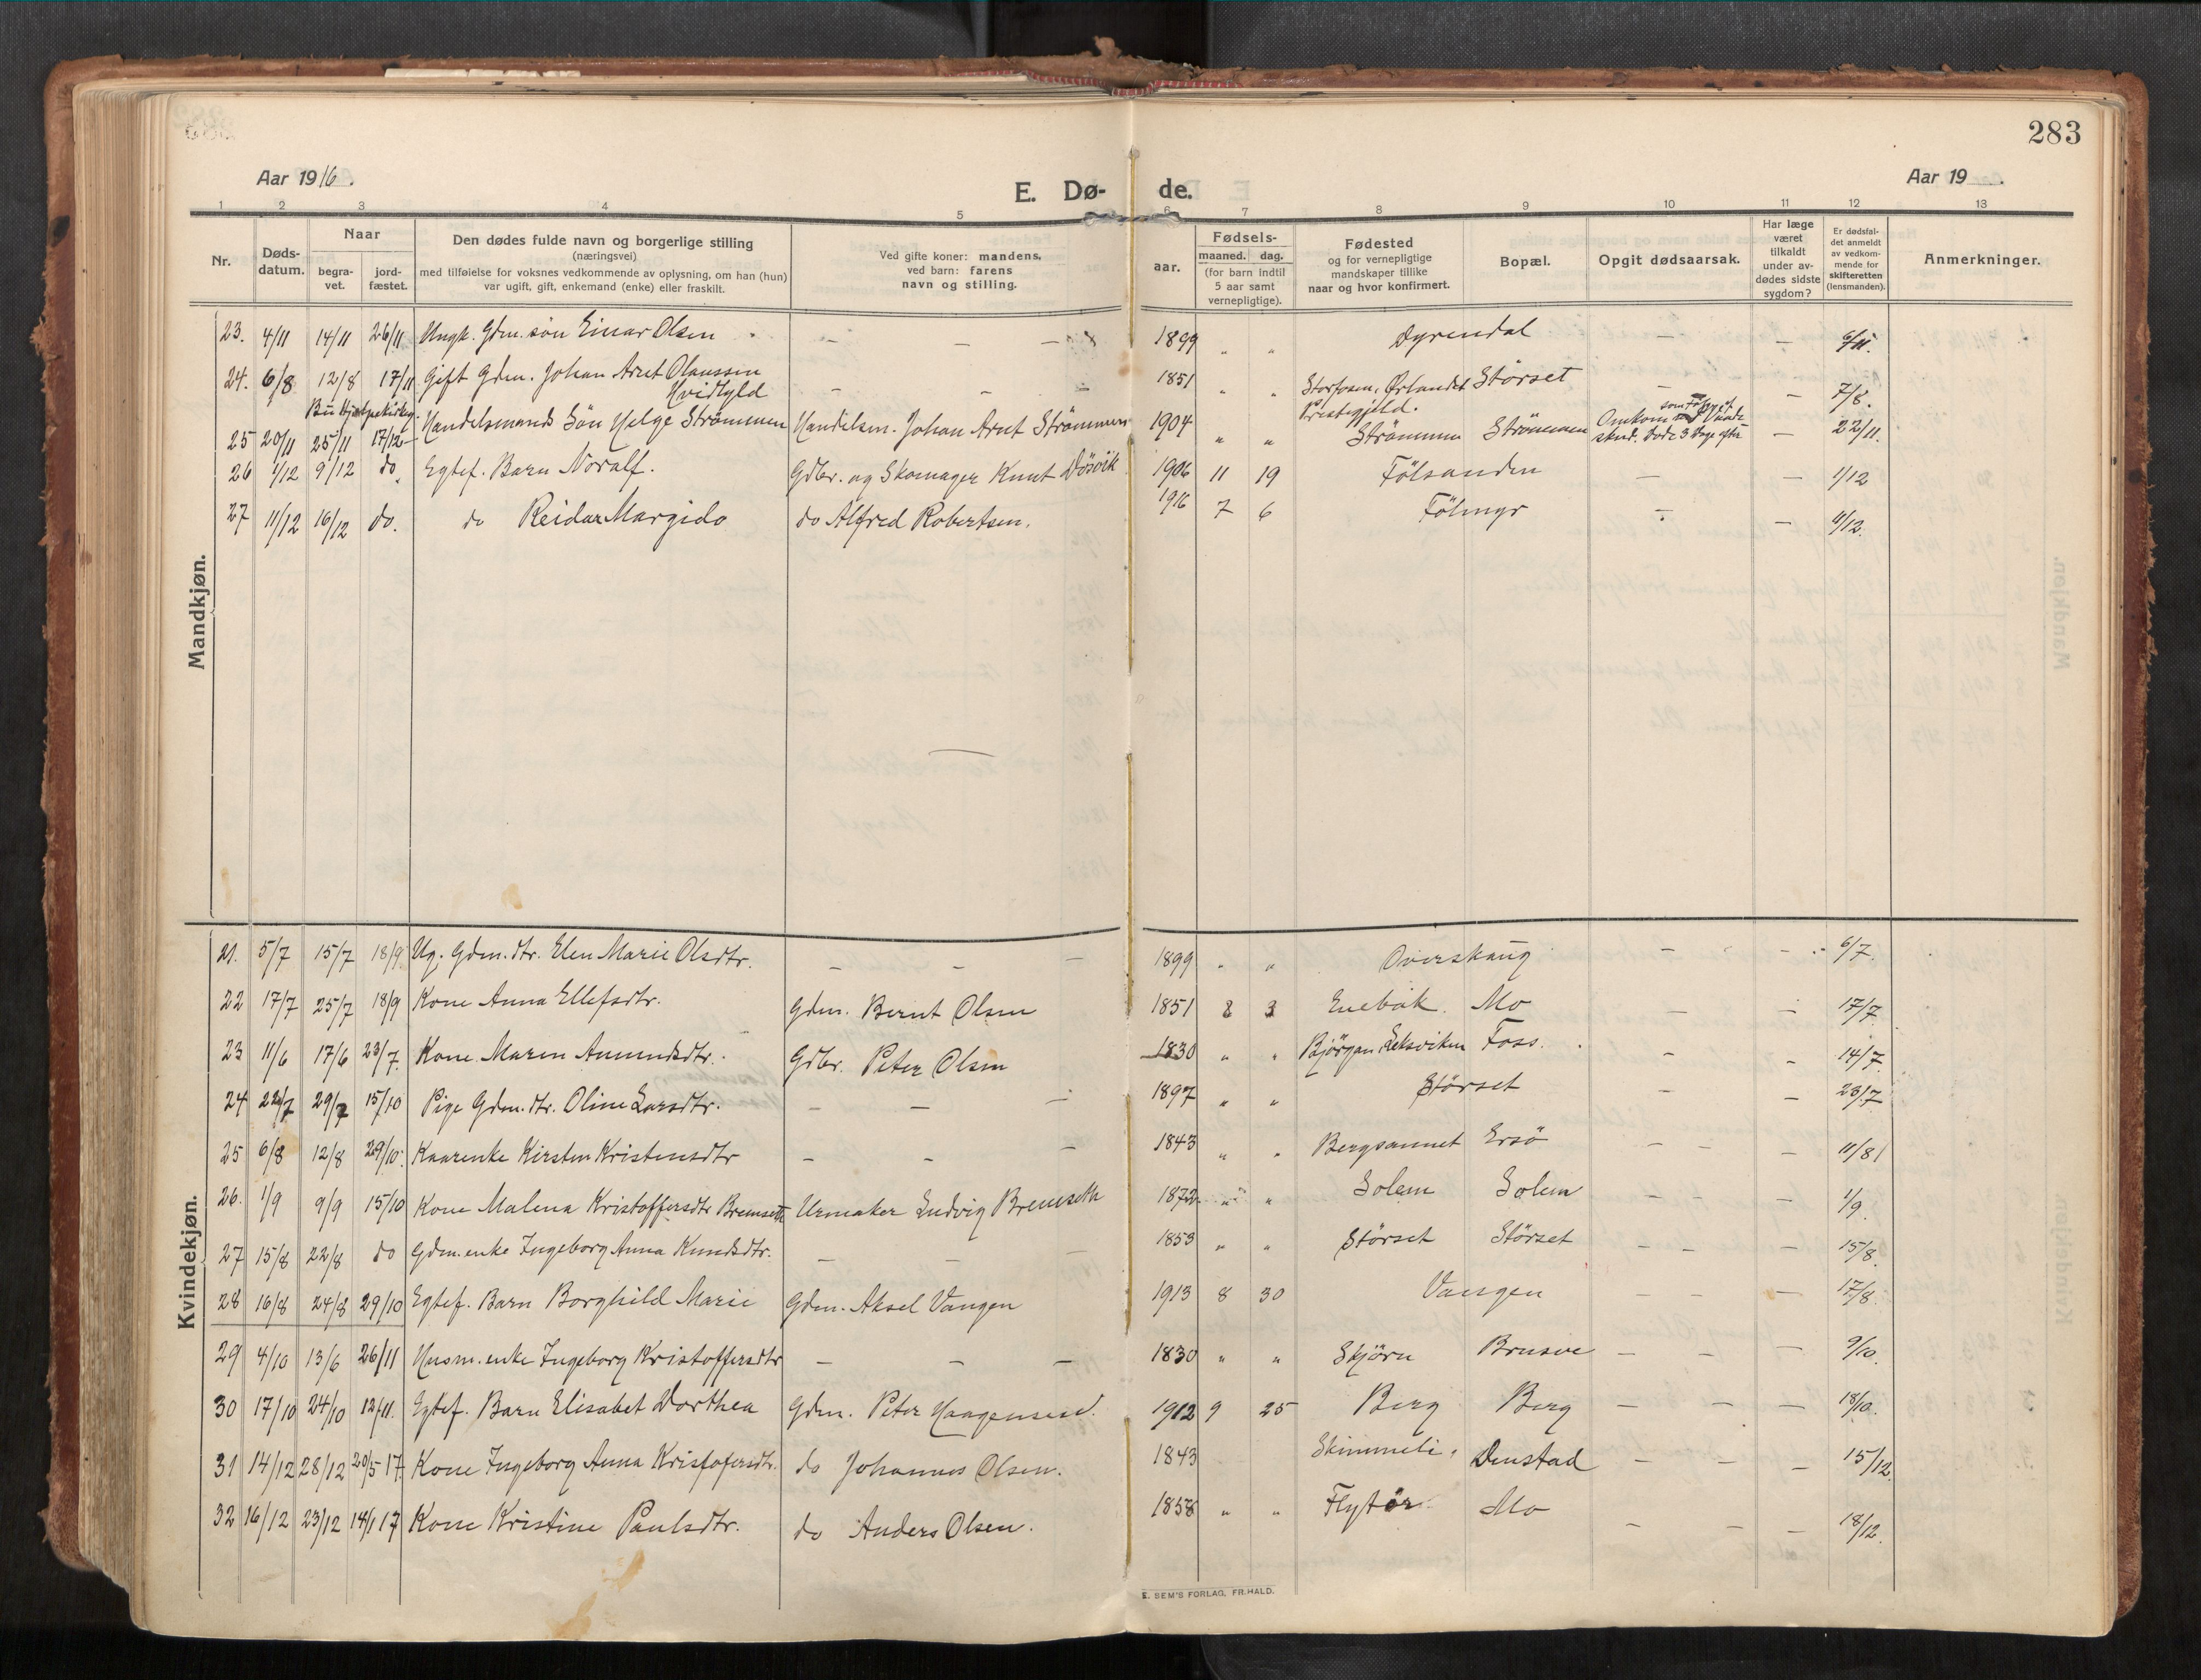 283
Aar 1916.
E. Dø- de.
Aar 19 .
1 2 3 4 5 6 7 8 9 10 11 12 13
Nr. Døds-datum. Naar begra-vet. jord-fæstet. Den dødes fulde navn og borgerlige stilling (næringsvei) med tilføielse for voksnes vedkommende av oplysning, om han (hun) var ugift, gift, enkemand (enke) eller fraskilt. Ved gifte koner: mandens, ved barn: farens navn og stilling. aar. Fødsels- maaned. dag. (for barn indtil 5 aar samt vernepligtige). Fødested og for vernepligtige mandskaper tillike naar og hvor konfirmert. Bopæl. Opgit dødsaarsak. Har læge været tilkaldt under av-dødes sidste sygdom? Er dødsfal-det anmeldt av vedkom-mende for skifteretten (lensmanden). Anmerkninger.
Mandkjøn.
23. 4/11 14/11 26/11 Ungk. Gdm. søn Einar Olsen - - - 1899 " " Dyrendal - - 6/11.
24. 6/8 12/8 17/11 Gift Gdm. Johan Arnt Olaussen - - - 1851 " " Storfosen, Ørlandet Störset - - 7/8.
Hvidtyld Prestegjeld.
25 20/11 25/11 17/12 Handelsmands Sön Helge Strömmen Handelsm. Johan Arnt Strömmen 1904 " " Strömmen Strömmen Omkom som Følge af Vaade skud. Døde 3 Dage efter - 22/11.
26 1/12 9/12 do. Egtef. Barn Noralf. Gdbr. og Skomager Knut Dösvik 1906 11 19 Fölsanden - - 1/12
27 11/12 16/12 do. do Reidar Margido do Alfred Robertsen. 1916 7 6 Fölmyr - - 11/12.
Kvindekjøn.
21. 5/7 15/7 18/9 Ug. Gdm. dtr. Elen Marie Olsdtr. - - - 1899 " " Overskaug - - 6/7.
22 17/7 25/7 18/9 Kone Anna Ellefsdtr. Gdm. Bernt Olsen 1851 2 3 Enebak. Mo - - 17/7.
23 11/6 17/6 23/7. Kone Maren Amundsdtr. Gdbr. Peter Olsen 1830 " " Björgan, Leksviken Foss. - - 14/7
24 22/7 29/7 15/10 Pige Gdm. dtr. Oline Larsdtr. - - - 1897 " " Störset - - 23/7
25 6/8 12/8 29/10. Kaarenke Kirsten Kristensdtr - - - 1843 " " Bergsaunet Ersö - - 11/8
26. 1/9 9/9 15/10 Kone Malena Kristoffersdtr Bremseth Urmaker Ludvig Bremseth 1872 " " Solem Solem - - 1/9.
27 15/8 22/8 do Gdm. enke Ingeborg Anna Knudsdtr. - - - 1853 " " Störset Störset - - 15/8
28 16/8 24/8 29/10 Egtef. Barn Borghild Marie Gdm. Aksel Vangen 1913 8 30 Vangen - - 17/8.
29 4/10 13/6 26/11 Husm. enke Ingeborg Kristoffersdtr - - - 1830 " " Skjörn Brusve - - 9/10.
30 17/10 24/10 12/11. Egtef. Barn Elisabet Dorthea Gdm. Peter Haagensen. 1912 9 25 Berg Berg - - 18/10.
31 14/12 28/12 20/5 17. Kone Ingeborg Anna Kristofersdtr. do Johannes Olsen. 1843 Skimmeli Denstad - - 15/12.
32 16/12 23/12 14/1 17 Kone Kristine Paulsdtr. do Anders Olsen. 1858 " " Flytör Mo - - 18/12.
E. SEM'S FORLAG, FR.HALD.